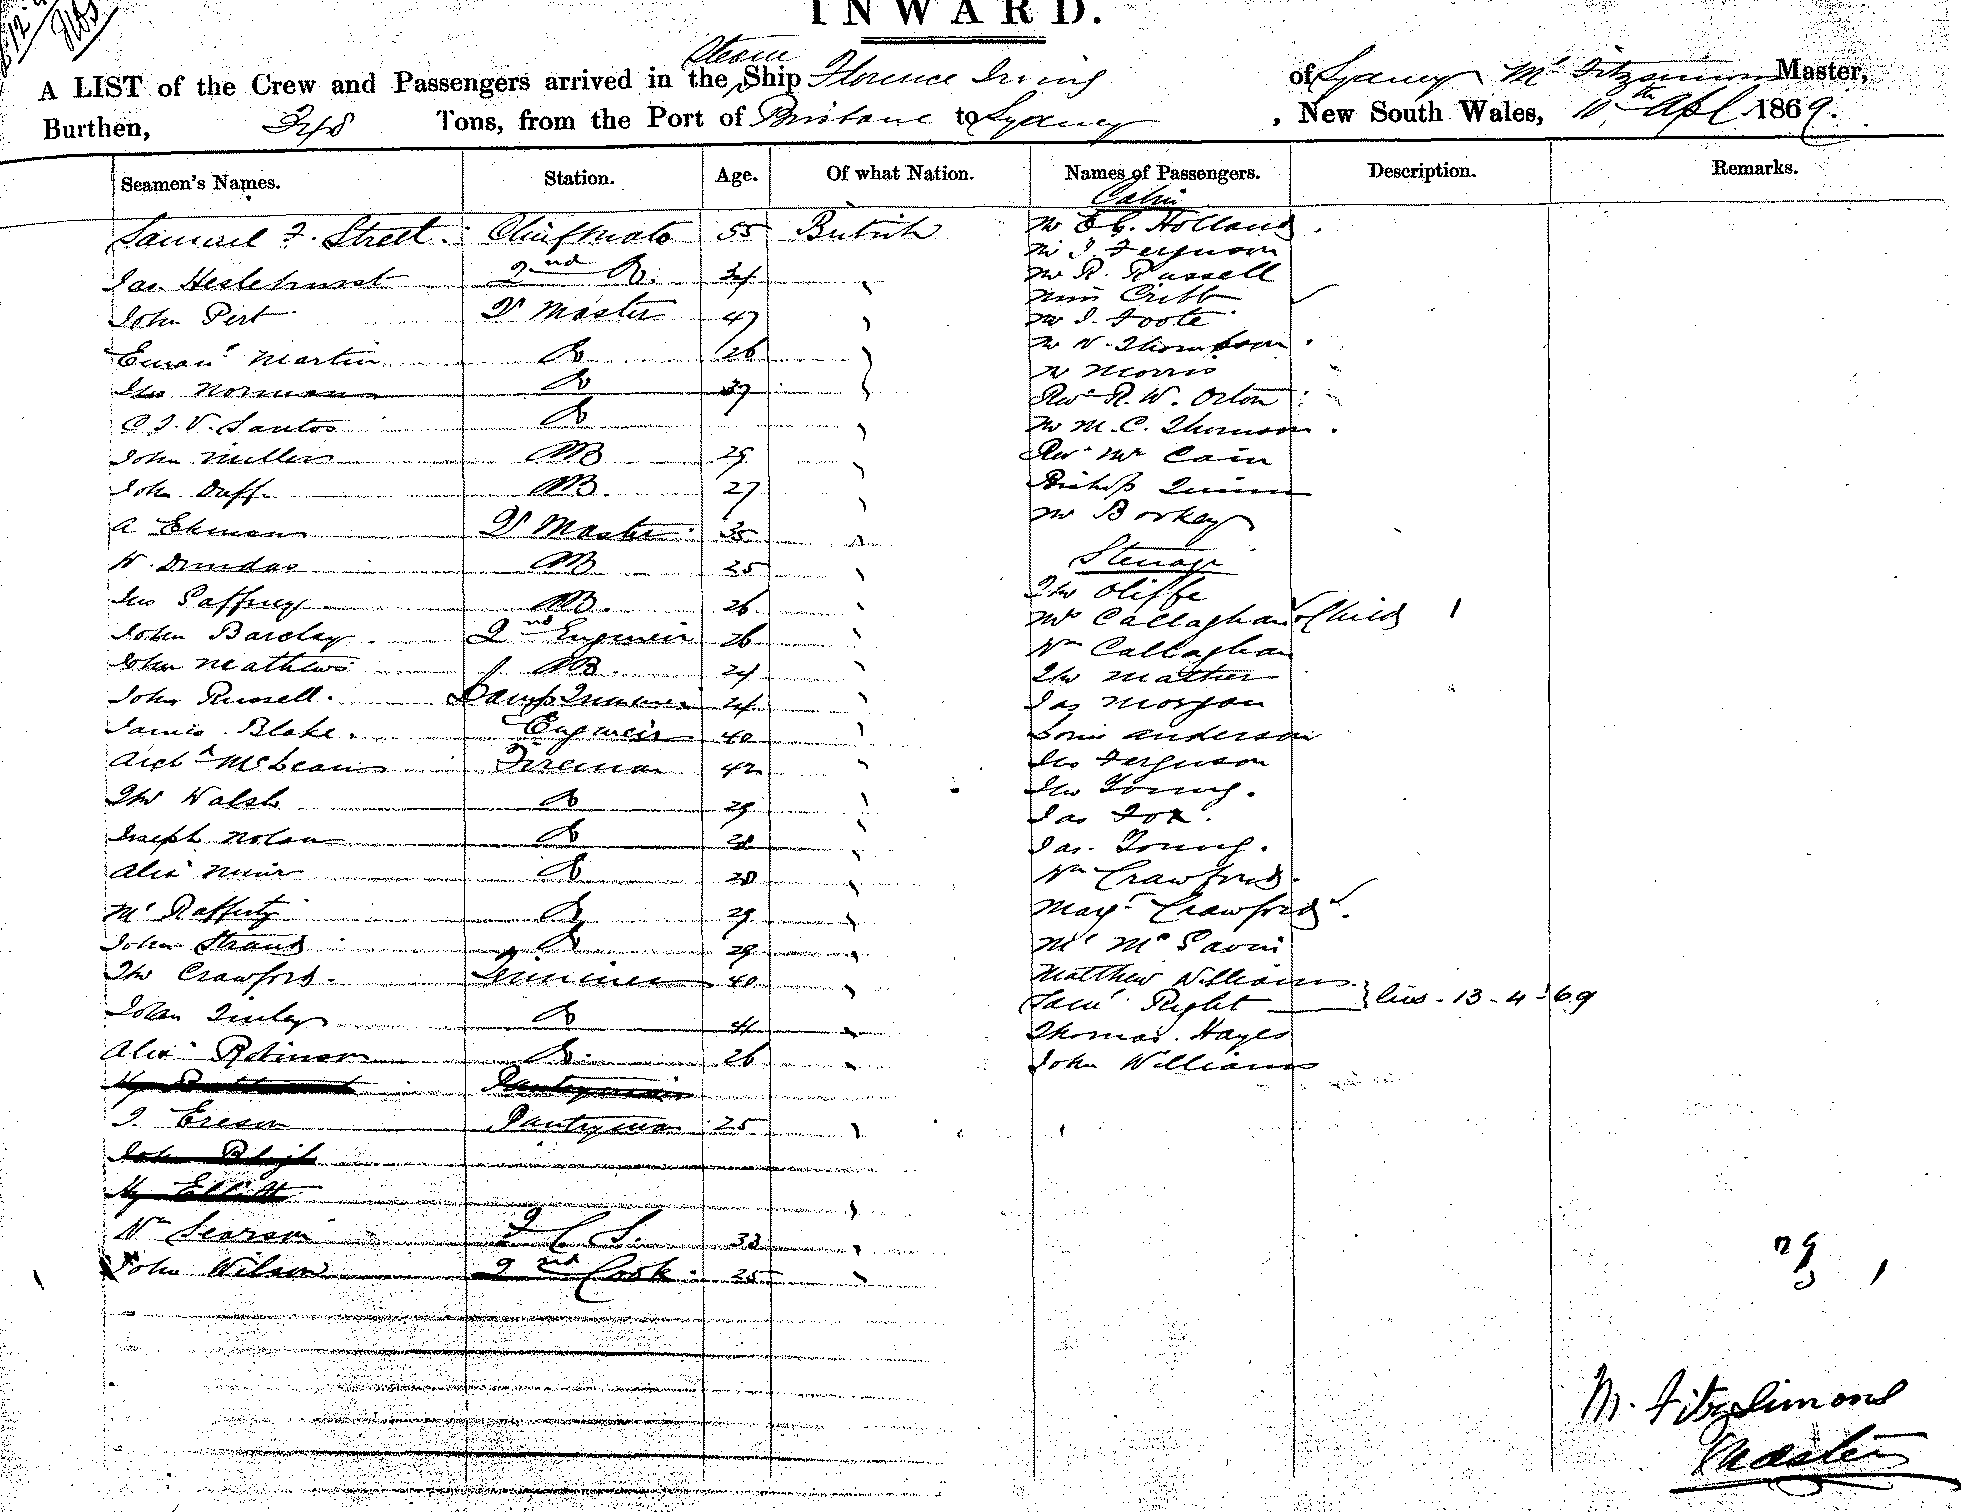 INWARD.
Steam
A LIST of the Crew and Passengers arrived in the Ship Florence Irving of Sydney Mr Fitzsimons Master,
Burthen, Tons, from the Port of Brisbane to Sydney, New South Wales, 10th Apl 1869.
Seamen's Names. Station. Age. Of what Nation. Names of Passengers. Description. Remarks.
Cabin
Samuel F. Street. Chief Mate 55 British Mr E C. Holland
Mr J Ferguson
Jas Heslehurst 2nd Do. 34 Mr R. Russell
Miss Cribb
John Pert Qr Master 47 Mr J. Foote
Eman'l Martin Do 26 Mr W. Thompson
Jno Norman Do 37 Mr Morris
Revd R. W. Orton
C J. V. Santos Do Mr M. C. Thomson
John Miller AB 29 Revd Mr Cain
John Duff AB. 27 Bishop Quinn
A Ekman Qr Master 35 Mr Borkey
W. Dundas AB 25 Steerage
Tho Oliffe
Jno Gaffney AB. 26 Mrs Callaghan & Child 1
John Barclay 2nd Engineer 26 Wm Callaghan
John Mathews AB. 24 Tho Mather
John Russell. Lamp Trimmer 24 Jas Morgan
James Blake. Engineer 40 Anderson
Archd McLean Fireman 42 Jno Ferguson
Tho Walsh Do 29 Jno Young.
Jas Fox.
Joseph Nolan Do 28 Jas. Young.
Alexr Muir Do 28 Wm Crawford.
Ml Rafferty Do 29 Margt Crawford.
John Strand Do 29
Tho Crawford. Trimmer 40 Matthew Williams
Saml Right 13-4-69
John Finley Do 41 Thomas Hayes
Alexr Robinson Do. 26 John Williams
Pantryman
J. Pantryman 25
John Bligh
Hy Elliott
Wm Searson F C S. 33
John Wilson 2nd Cook. 25
29 1
M. Fitz Simons
Master